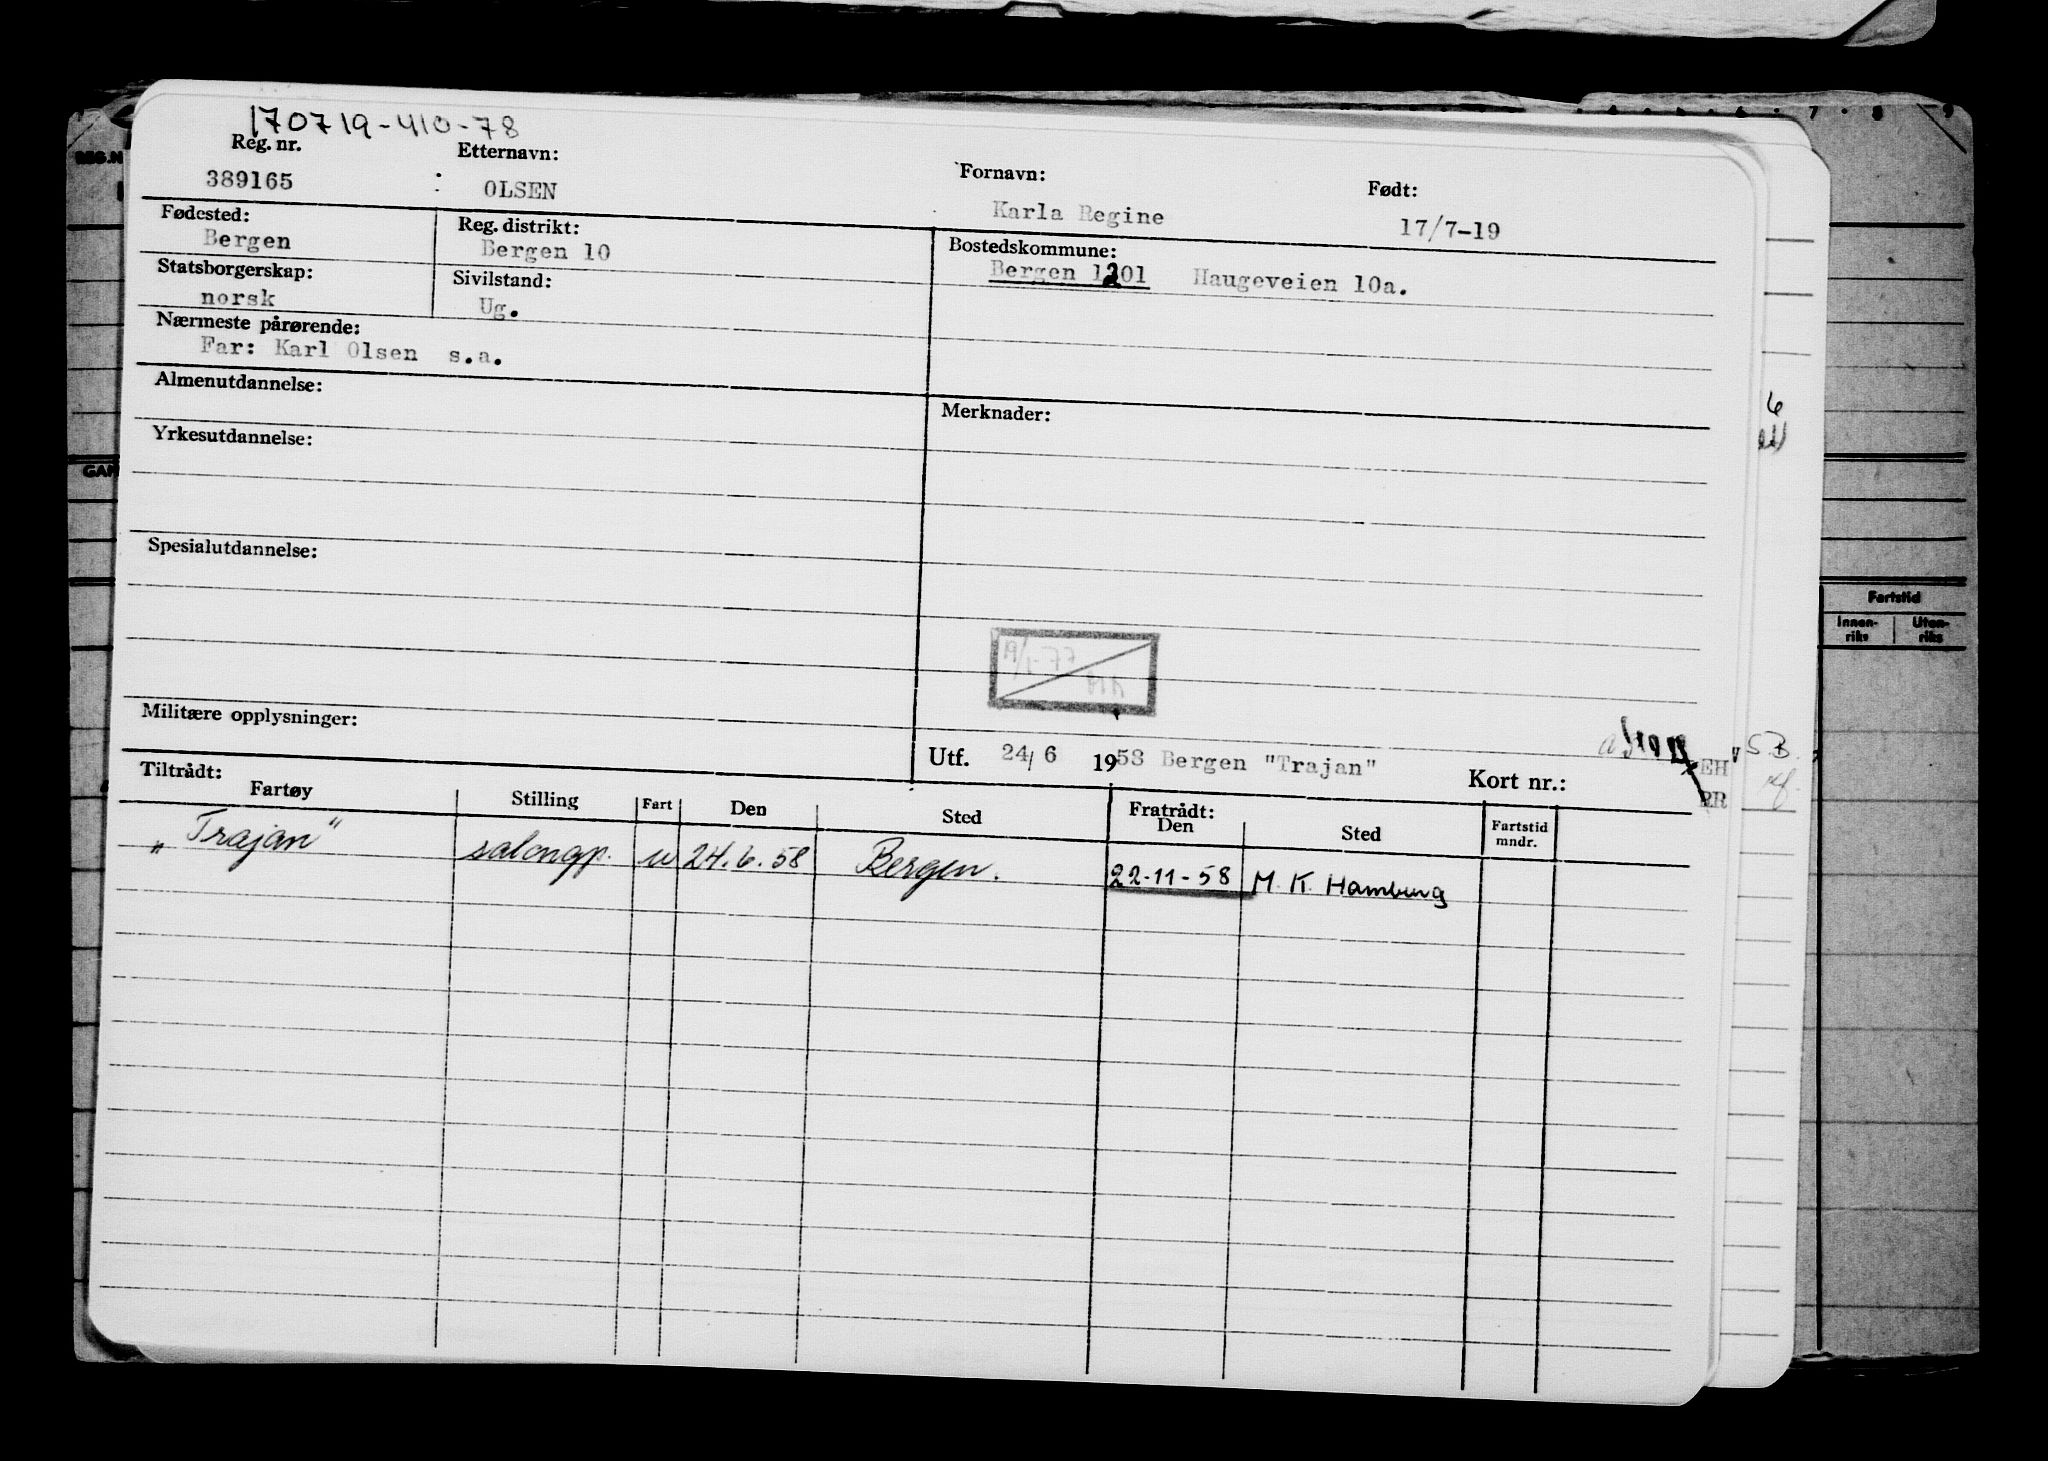 170719-410-78
Reg. nr. Etternavn: Fornavn: Født:
389165 : OLSEN Karla Regine 17/7-19
Fødested: Reg. distrikt: Bostedskommune:
Bergen Bergen 10 Bergen 1201 Haugeveien 10a.
Statsborgerskap: Sivilstand:
norsk Ug.
Nærmeste pårørende:
Far: Karl Olsen s.a.
Almenutdannelse: Merknader:
Yrkesutdannelse:
Spesialutdannelse:
19/1-77
Militære opplysninger:
Utf. 24/6 1958 Bergen "Trajan" Kort nr.:
EH
Tiltrådt: Fratrådt:
Fartøy Stilling Fart Den Sted Den Sted Fartstid mndr.
"Trajan" salongp. u 24.6.58 Bergen. 22-11-58 M. K. Hamburg
REG.N
GAN
7 8 9
6
S.B.
Fartstid
Innen-riks Uten-riks